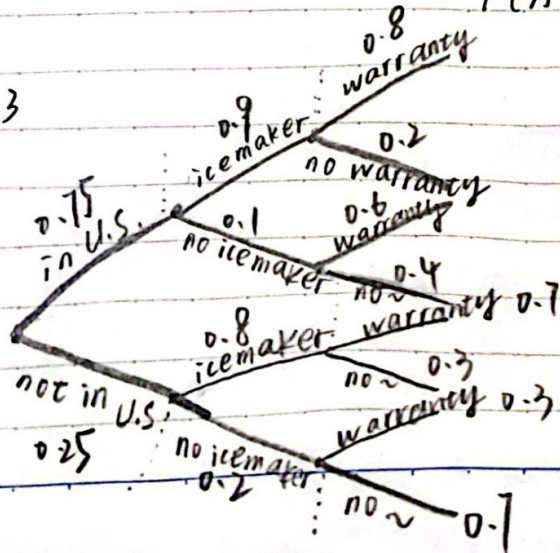 3
0.75
in U.S.
0.9
icemaker
0.8
warranty
0.2
no warranty
0.1
no icemaker
0.6
warranty
0.4
no ~
not in U.S.
0.25
0.8
icemaker
warranty 0.7
0.3
no ~
no icemaker
0.2
warranty 0.3
no ~ 0.7